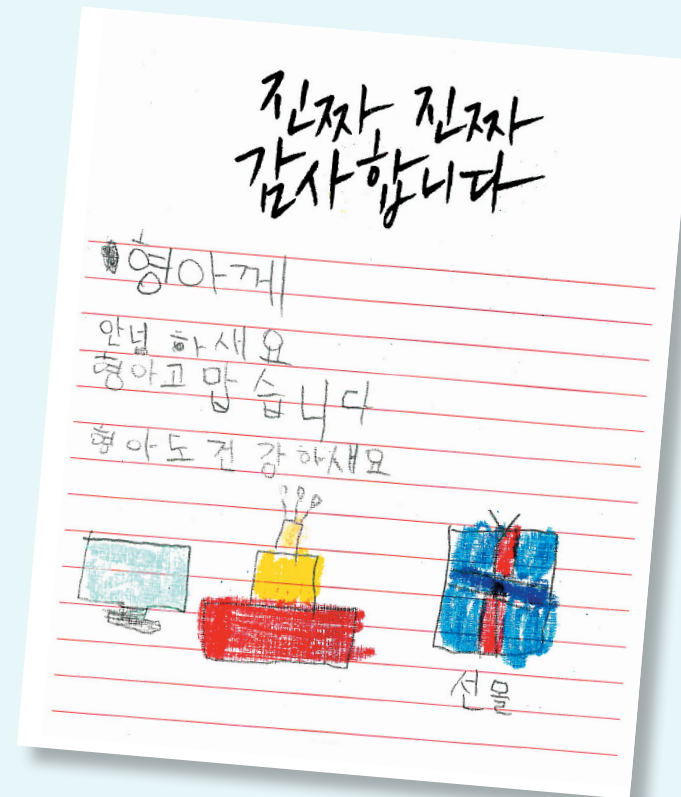 진짜 진짜
감사합니다
형아께
안녕 하새요
형아고맙습니다
형아도 건강하새요
선물